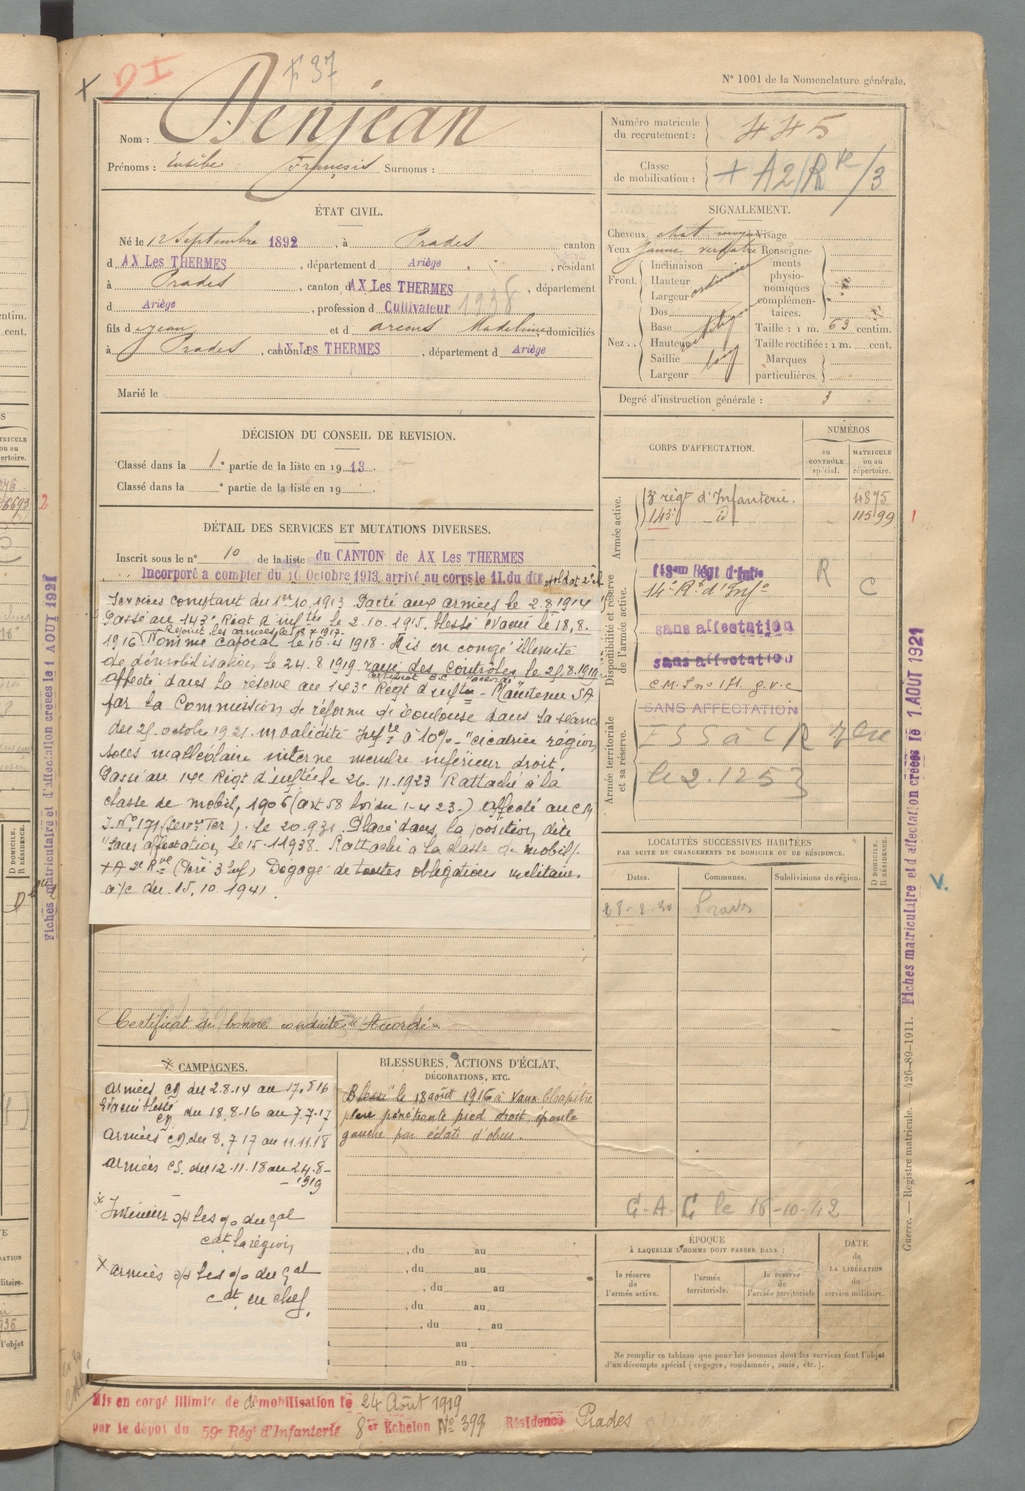 N° 1001 de la Nomenclature générale.
DI
+ 37
Nom : Denjean
Prénoms : Eusèbe François Surnoms :
Numéro matricule du recrutement : 445
Classe de mobilisation : + A2/R /3
ÉTAT CIVIL.
Né le 12 Septembre 1892, à Prades canton
d AX Les THERMES, département d Ariège, résidant
à Prades, canton d AX Les THERMES, département
d Ariège, profession d Cultivateur 1938
fils d jean et d arcens Madeleine domiciliés
à Prades, canton d AX Les THERMES, département d Ariège
Marié le
SIGNALEMENT.
Cheveux chat moyen Visage
Yeux jaune verdâtre Renseignements physionomiques complémentaires.
Front Inclinaison
Hauteur ordinaire
Largeur
Nez Dos
Base
Hauteur
Saillie
Largeur
Taille : 1 m. 63 centim.
Taille rectifiée : 1 m. cent.
Marques particulières.
Degré d'instruction générale : 3
DÉCISION DU CONSEIL DE REVISION.
Classé dans la 1e partie de la liste en 1913.
Classé dans la e partie de la liste en 19
DÉTAIL DES SERVICES ET MUTATIONS DIVERSES.
Inscrit sous le n° 10 de la liste du CANTON de AX Les THERMES
Incorporé à compter du 10 Octobre 1913, arrivé au corps le 11. du dit soldat 2e cl
Services comptant du 1er 10.1913 Parti aux armées le 2.8.1914
Passé au 143e Régt d'inftie le 2.10.1915. Blessé Evacué le 18.8.
1916 Rejoint les armées le 8.7.1917. Nommé caporal le 16.4.1918. Mis en congé illimité
de démobilisation le 24.8.1919 rayé des contrôles le 25.8.1919.
affecté dans la réserve au 143e Régt d'inftie - Maintenu SA
par la Commission de réforme de Toulouse dans sa séance
du 25 octobre 1921. invalidité Infre à 10% - "cicatrice région
sous malléolaire interne membre inférieur droit.
Passé au 14e Régt d'inftie le 26.11.1923 Rattaché à la
classe de mobil. 1906 (art 58 loi du 1-4-23.) affecté au C.M
I. N° 171 (Serv Ter). le 20.9.31. Placé dans la position dite
"Sans affectation, le 15-1-1938. Rattaché à la classe de mobil/.
+A 2e Rve (Père 3 Enf) Dégagé de toutes obligations militaires
a/c du 15.10.1941.
Certificat de bonne conduite "Accordé"
CORPS D'AFFECTATION.
NUMÉROS
AU CONTRÔLE spécial.
MATRICULE ou au répertoire.
Armée active.
3e régt d'Infanterie. 4875
143e _ d° _ 11599 1
Disponibilité et réserve de l'armée active.
143em Régt d'Infie R
14e Rt d'Infie C
sans affectation
sans affectation
C.M.I n° 171. g.v.c
Armée territoriale et sa réserve.
SANS AFFECTATION
le 2.12.53
LOCALITÉS SUCCESSIVES HABITÉES
PAR SUITE DE CHANGEMENTS DE DOMICILE OU DE RÉSIDENCE.
Dates. Communes. Subdivisions de région. D DOMICILE. R RÉSIDENCE.
28-8-20 Prades
C.A.C le 16-10-42
CAMPAGNES.
armées CD du 2.8.14 au 17.8.16
Evacué blessé CD du 18.8.16 au 7.7.17
armées CD du 8.7.17 au 11.11.18
armées CS. du 12.11.18 au 24.8-
-1919
* Intérieur s/s les o/ du Gal
cdt la région
* armées s/s les o/ du Gal
cdt en chef.
BLESSURES, ACTIONS D'ÉCLAT,
DÉCORATIONS, ETC.
Blessé le 18 août 1916 à Vaux Chapitre
plaie pénétrante pied droit, épaule
gauche par éclats d'obus.
, du au
, du au
, du au
, du au
, du au
au
au
ÉPOQUE
À LAQUELLE L'HOMME DOIT PASSER DANS :
la réserve de l'armée active.
l'armée territoriale.
la réserve de l'armée territoriale
DATE de LA LIBÉRATION du service militaire.
Ne remplir ce tableau que pour les hommes dont les services font l'objet
d'un décompte spécial (engagés, condamnés, omis, etc.).
Mis en congé illimité de démobilisation le 24 Août 1919
par le dépôt du 59e Régt d'Infanterie 8er Echelon N° 399 Résidence Prades
Fiches matriculaire et d'affectation créées le 1 AOUT 1921
Fiches matriculaire et d'affectation créées le 1 AOUT 1921
V.
Guerre. — Registre matricule. — 426-89-1911.